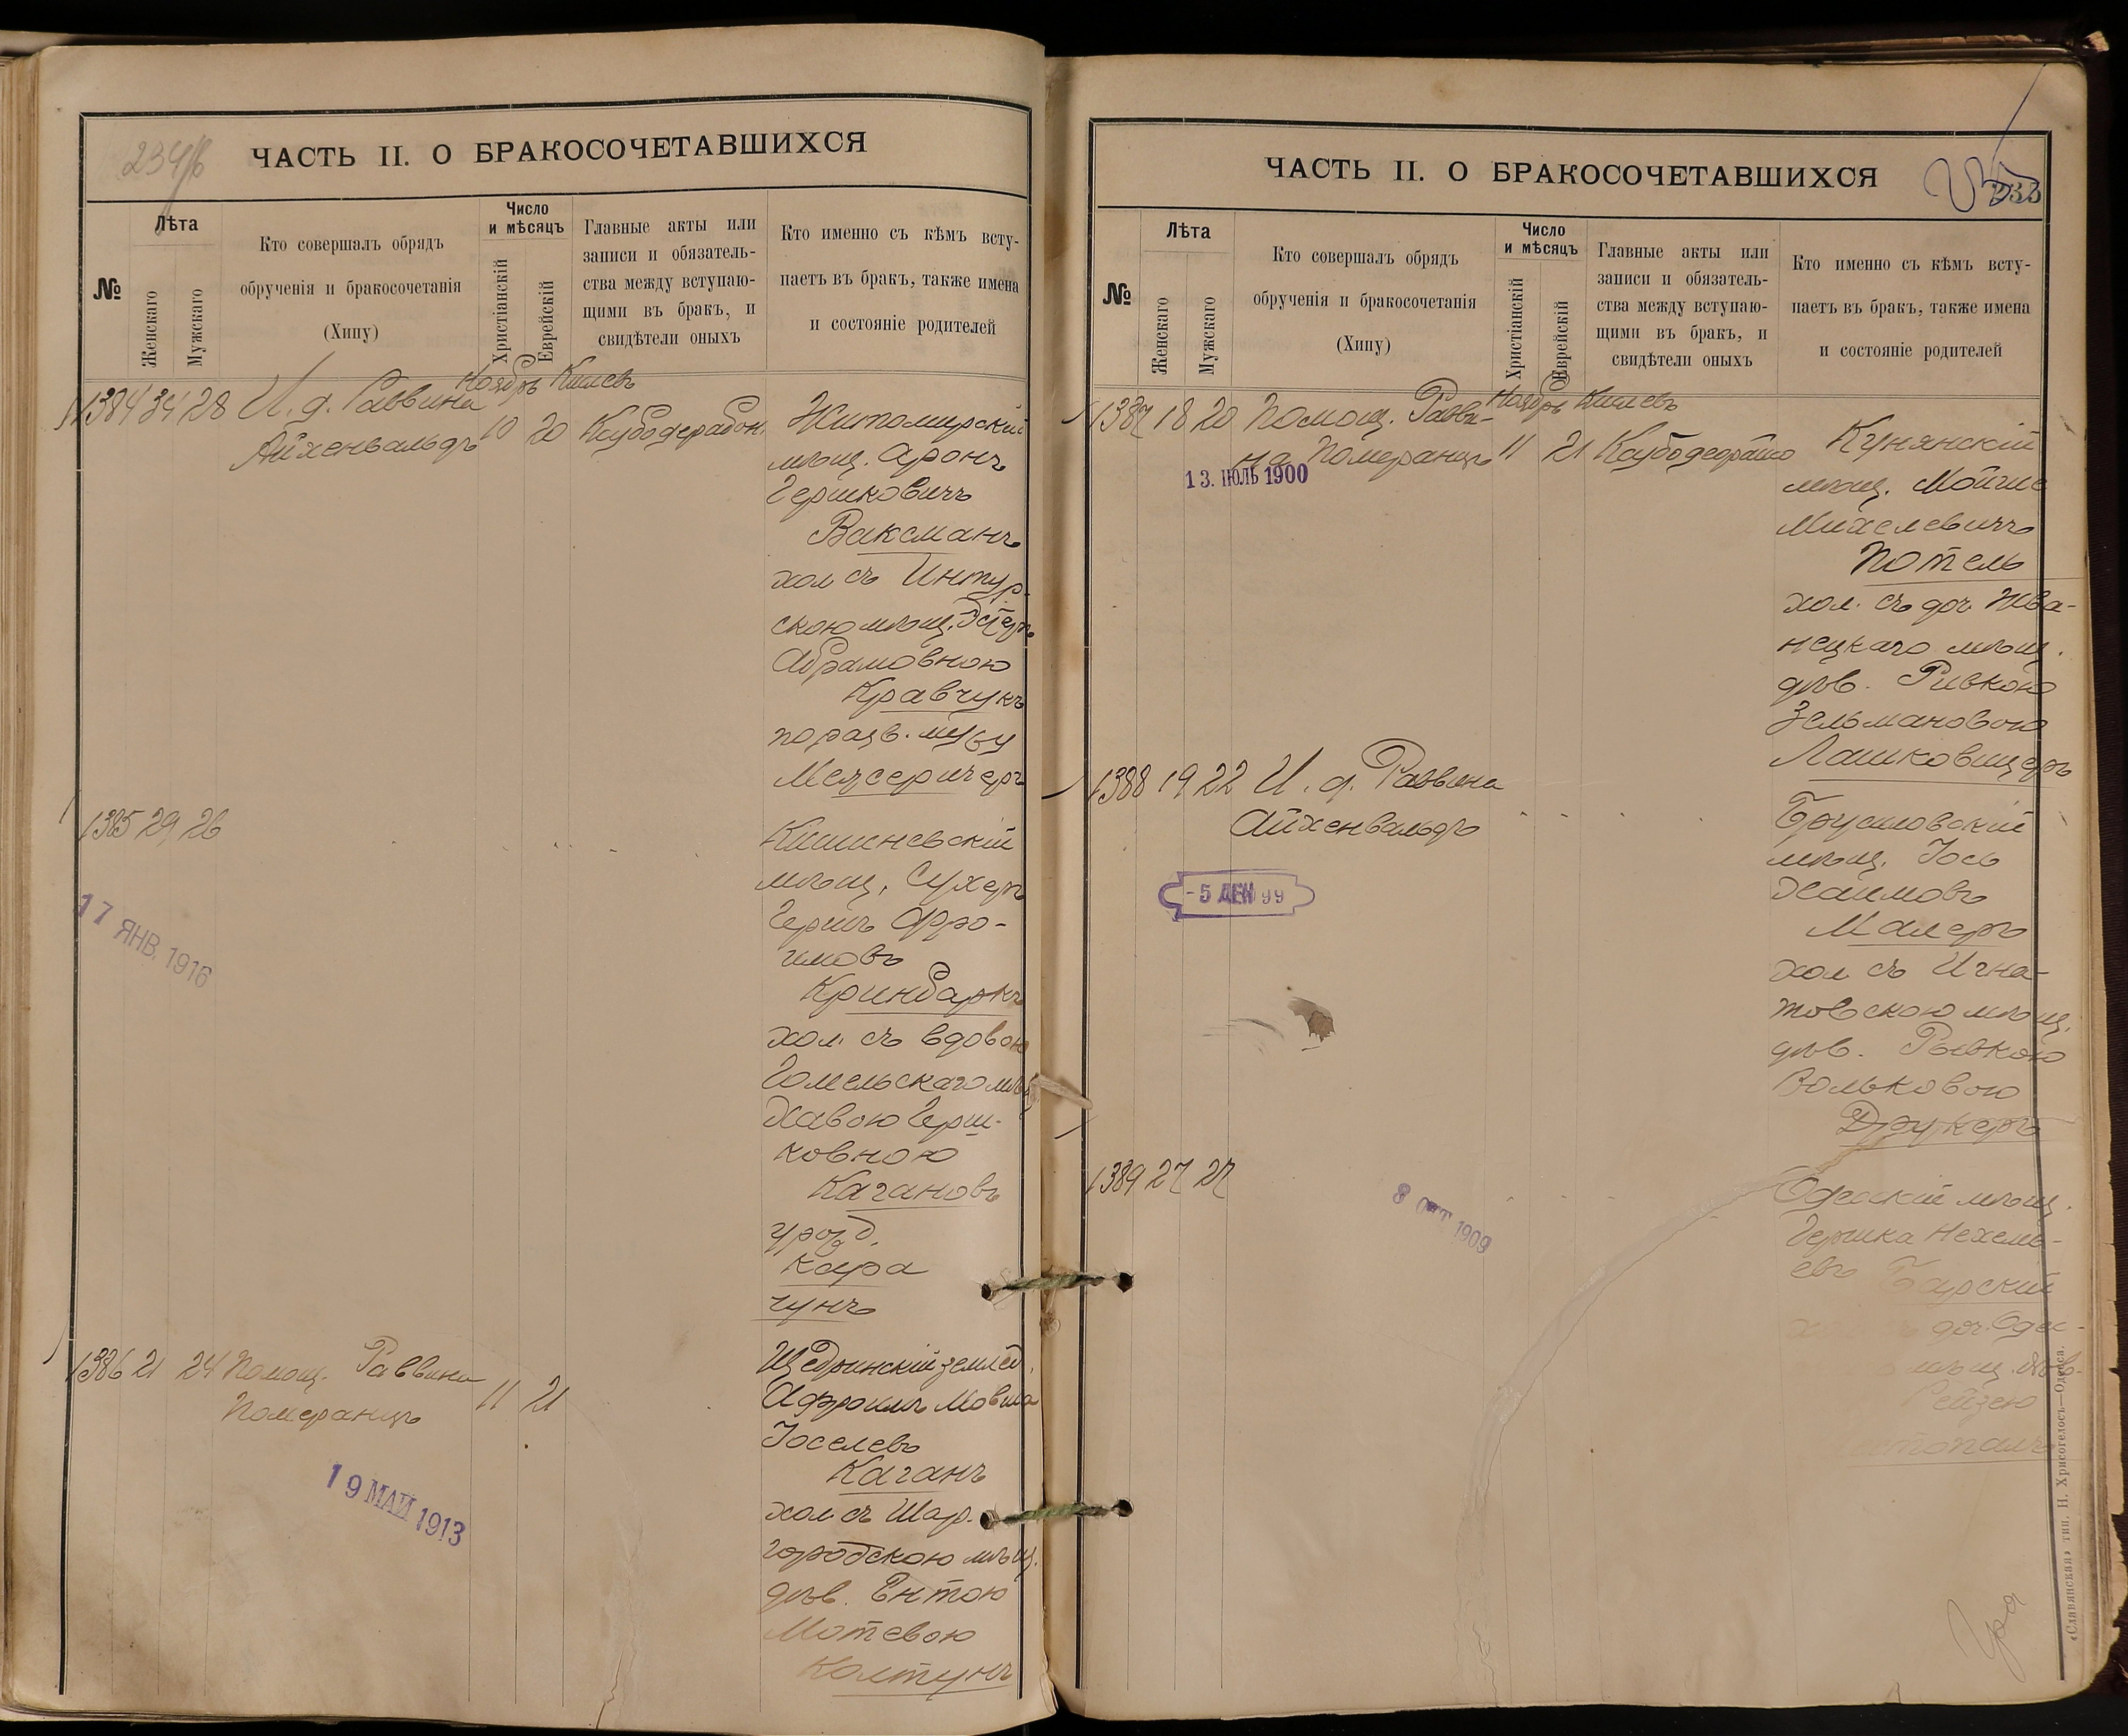 234/б
ЧАСТЬ II. О БРАКОСОЧЕТАВШИХСЯ
№
Лѣта
Женскаго
Мужскаго
Кто совершалъ обрядъ
обрученія и бракосочетанія
(Хипу)
Число
и мѣсяцъ
Христіанскій
Еврейскій
Главные акты или
записи и обязатель-
ства между вступаю-
щими въ бракъ, и
свидѣтели оныхъ
Кто именно съ кѣмъ всту-
паетъ въ бракъ, также имена
и состояніе родителей
Ноябрь Кишевъ
1384 34 28 И. д. Раввина
Айхенвальдъ 10 20
Житомирскій
мѣщ. Аронъ
Гершковичъ
Ваксманъ
хол съ Интур-
скою мѣщ. Эстеръ
Абрамовною
Кравчукъ
по разв. мужу
Межеричеръ
1385 29 26
Кишиневскій
мѣщ. Сухеръ
Гершъ Фро-
имовъ
Кринбаркъ
хол. съ вдовою
Гомельскаго мѣщ.
Хавою Герш-
ковною
Кагановъ
урожд.
Кара
гунъ
17 ЯНВ. 1916
1386 21 24 Помощ. Раввина
Померанцъ 11 21
Щедринскій землед.
Афроимъ Мовша
Іоселевъ
Каганъ
хол съ Шар-
городскою мѣщ.
дѣв. Ентою
Мотевою
Колтунъ
19 МАЙ 1913
ЧАСТЬ II. О БРАКОСОЧЕТАВШИХСЯ
№
Лѣта
Женскаго
Мужскаго
Кто совершалъ обрядъ
обрученія и бракосочетанія
(Хипу)
Число
и мѣсяцъ
Христіанскій
Еврейскій
Главные акты или
записи и обязатель-
ства между вступаю-
щими въ бракъ, и
свидѣтели оныхъ
Кто именно съ кѣмъ всту-
паетъ въ бракъ, также имена
и состояніе родителей
Ноябрь Кишевъ
1387 18 20 Помощ. Равви-
на Померанцъ 11 21
13. ІЮЛЬ 1900
Кунянскій
мѣщ. Мойше
Михелевичъ
Потель
хол. съ доч. Жва-
нецкаго мѣщ.
дѣв. Ривкою
Зельмановою
Лашковицеръ
1388 19 22 И. д. Раввина
Айхенвальдъ
- 5 ДЕК 99
Брусиловскій
мѣщ. Іось
Хаимовъ
Малеръ
хол съ Игна-
товскою мѣщ.
дѣв. Рывкою
Вольковою
Друкеръ
1389 27 27
8 ОКТ 1909
Одесскій мѣщ.
Гершка Нехемь-
евъ Барскій
доч. Одес-
мѣщ. дѣв.
Рейзею
«Славянская» тип. Н. Хрисогелосъ—Одесса.